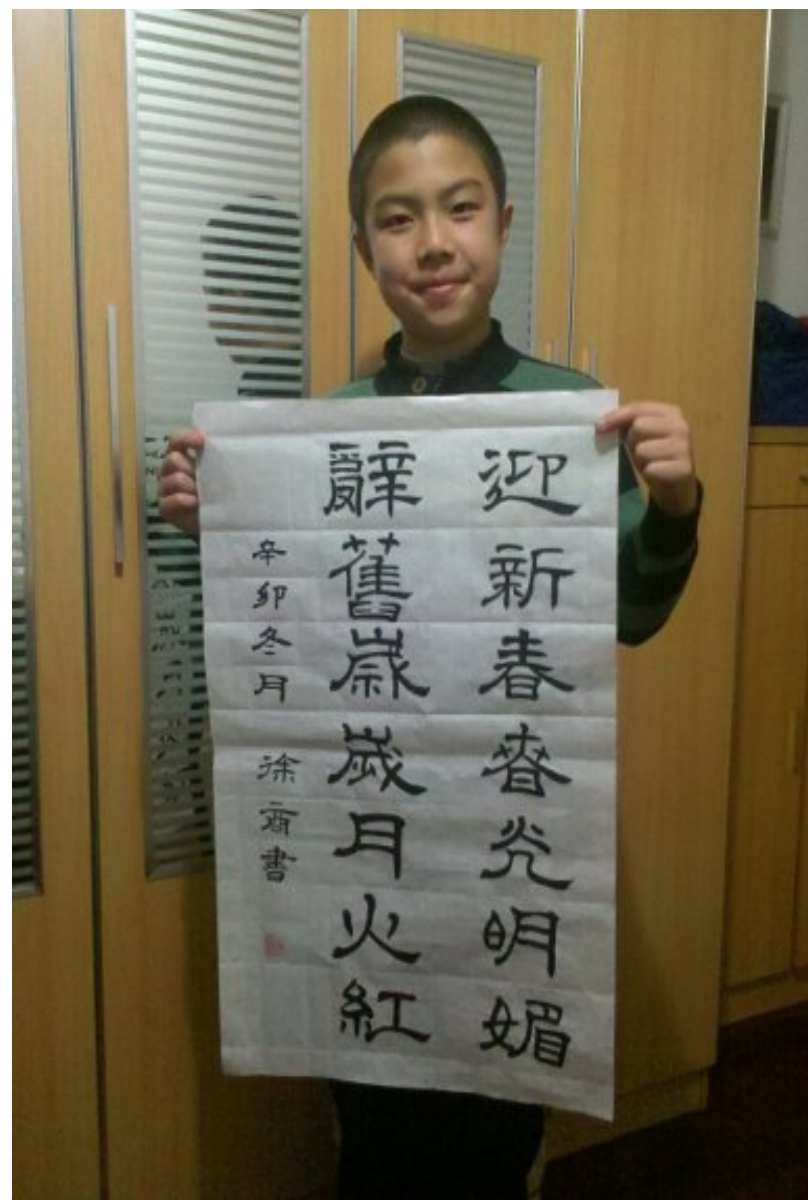 迎新春春光明媚
辭舊歲歲月火紅
辛卯冬月 徐齋書